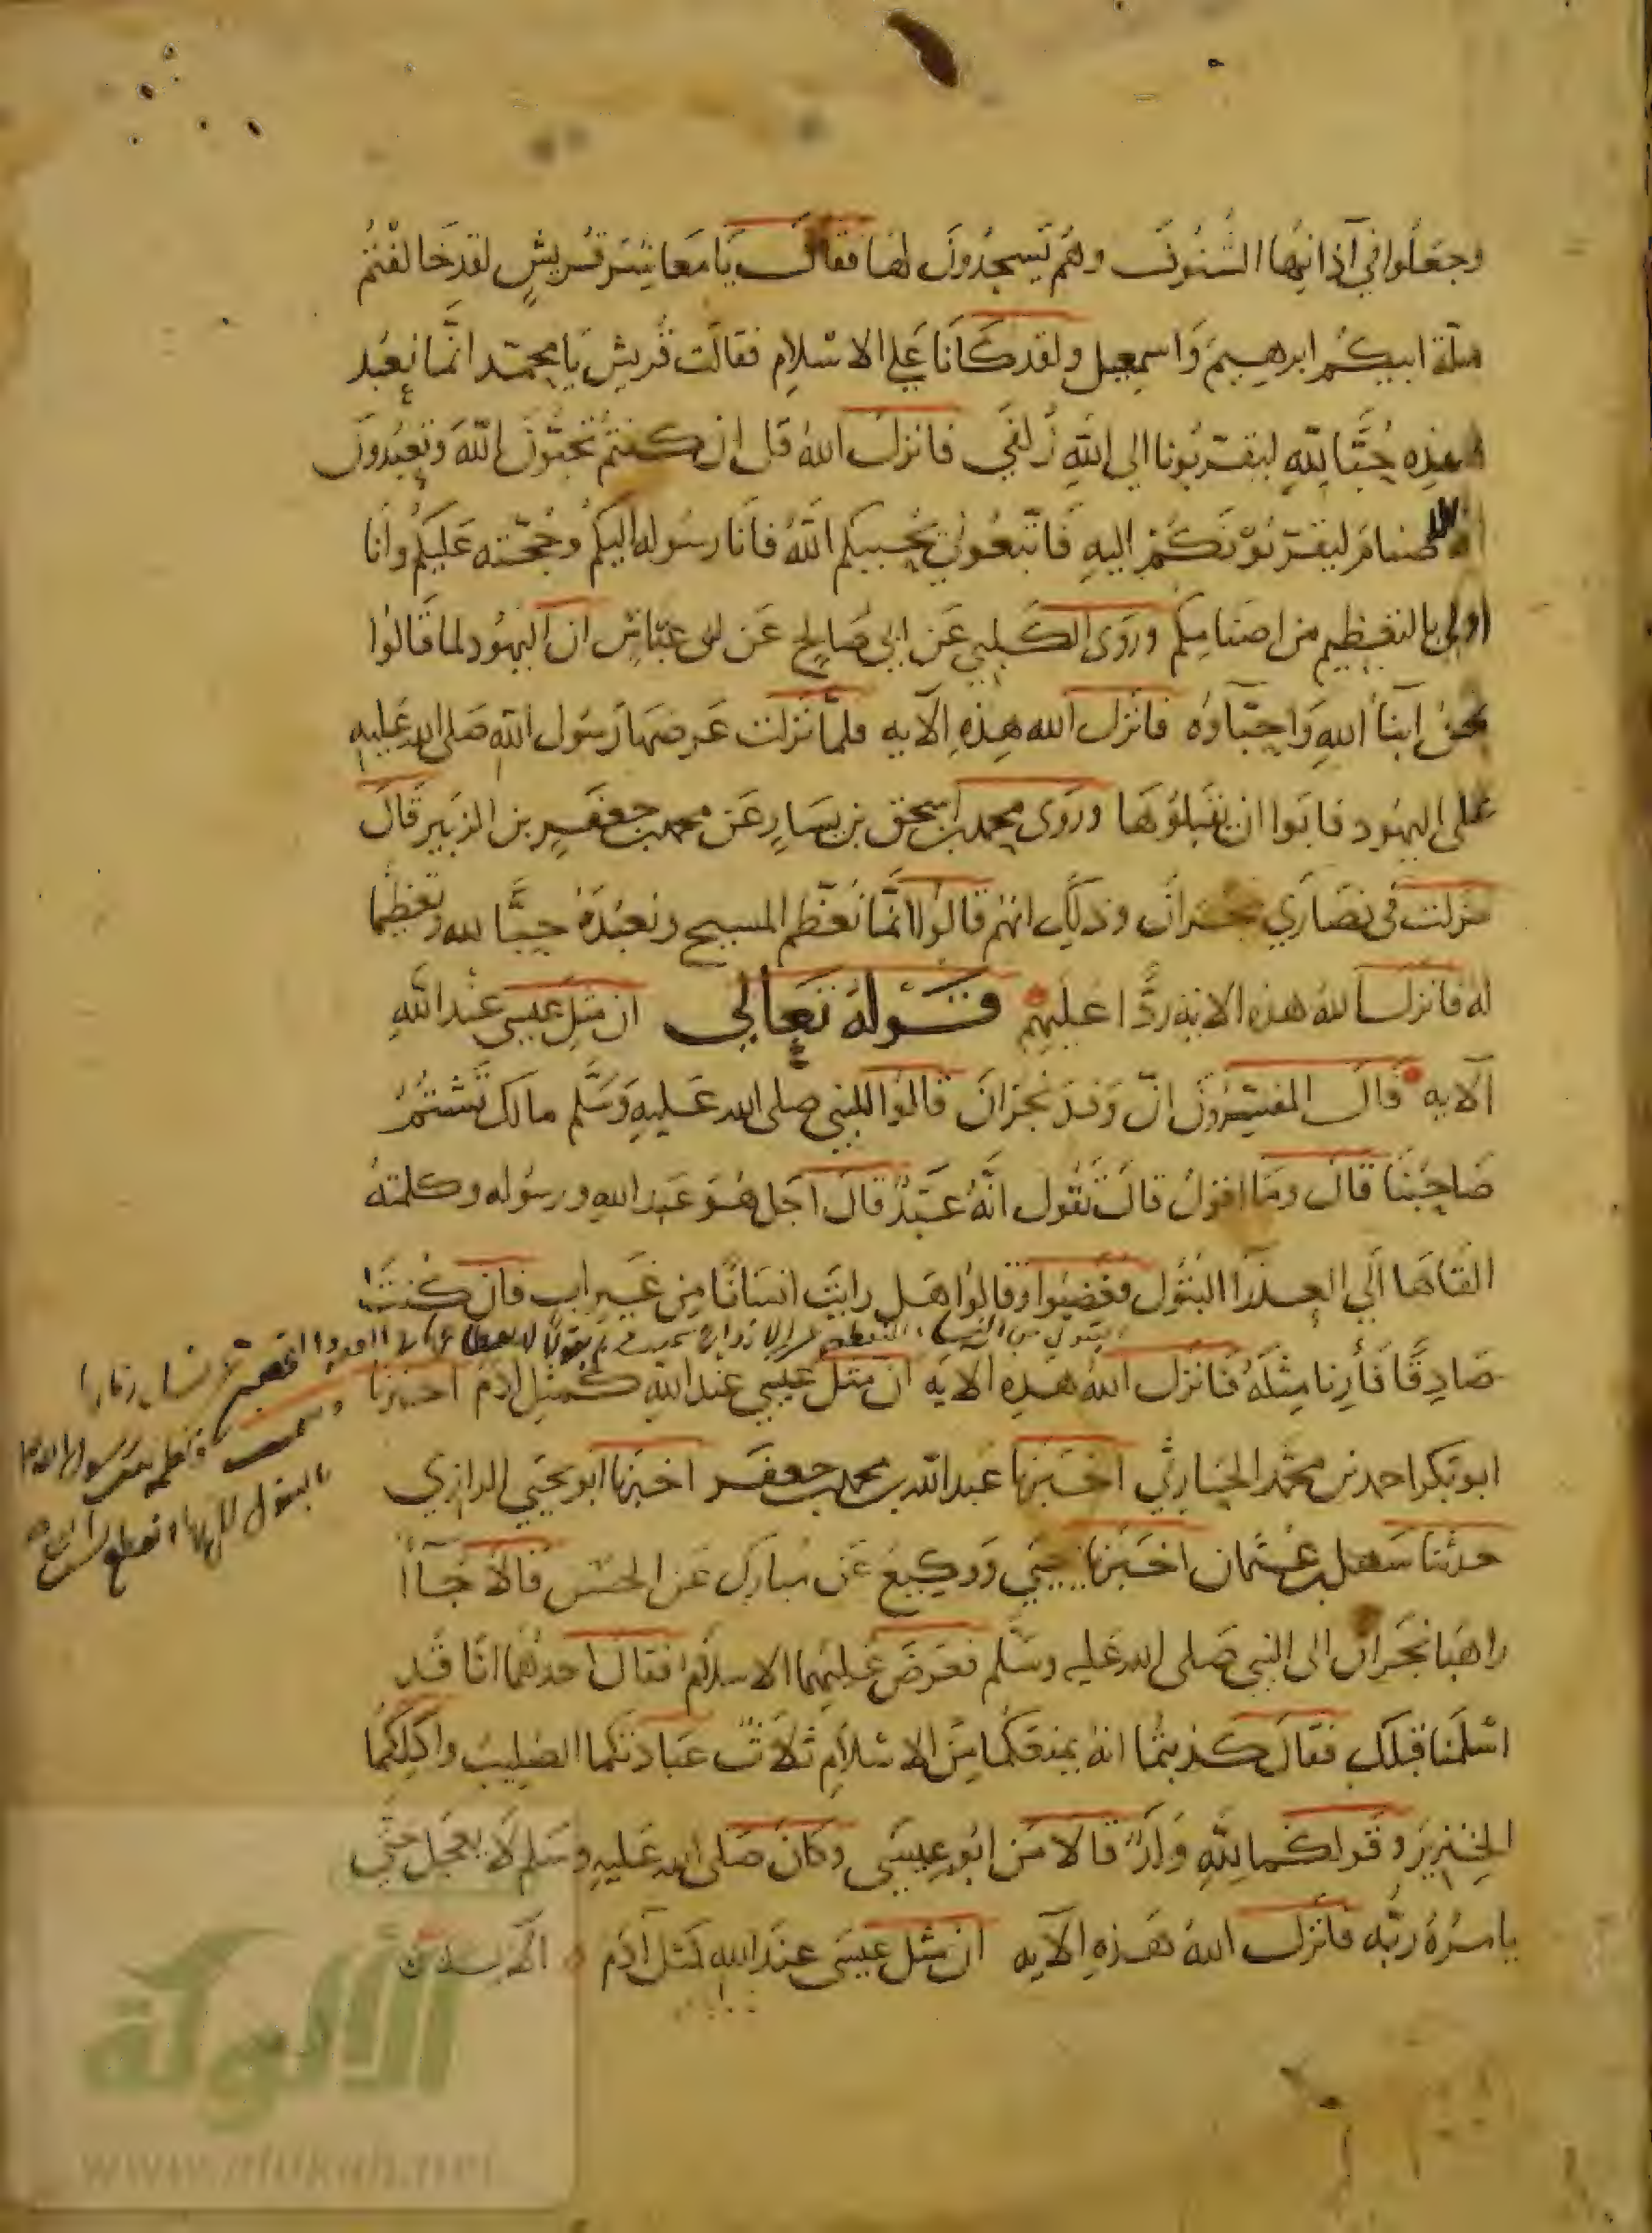 وجعلوا في آذانها الشنوف وهم يسجدون لها فقال يا معاشر قريش لقد خالفتم
ملة ابيكم ابرهيم واسمعيل ولقد كانا على الاسلام فقالت قريش يا محمد انما نعبد
هذه حبا لله ليقربونا الى الله زلفى فانزل الله قل ان كنتم تحبون الله وتعبدون
الاصنام ليقربونكم اليه فاتبعوني يحببكم الله فانا رسوله اليكم وحجته عليكم وانا
اولى بالتعظيم من اصنامكم وروى الكلبي عن ابي صالح عن ابن عباس ان اليهود لما قالوا
نحن ابنآ الله واحباوه فانزل الله هذه الآيه فلما نزلت عرضها رسول الله صلى الله عليه
على اليهود فابوا ان يقبلوها وروى محمد بن اسحق بن يسار عن محمد بن جعفر بن الزبير قال
نزلت في نصارى نجران وذلك انهم قالوا انما نعظم المسيح ونعبده حبا لله وتعظيما
له فانزل الله هذه الايه ردا عليهم قوله تعالى ان مثل عيسى عند الله
الآيه قال المفسرون ان وفد نجران قالوا للنبي صلى الله عليه وسلم مالك تشتم
صاحبنا قال وما اقول قالت تقول انه عبد قال اجل هو عبد الله ورسوله وكلمته
القاها الى العذرا البتول فغضبوا وقالوا هل رايت انسانا من غير اب فان كنت
صادقا فأرنا مثله فانزل الله هذه الايه ان مثل عيسى عند الله كمثل ادم اخبرنا
ابو بكر احمد بن محمد الحارثي اخبرنا عبد الله بن محمد بن جعفر اخبرنا ابو يحيى الرازي
حدثنا سهل بن عثمان اخبرنا يحيى ووكيع عن مبارك عن الحسن قالا جآا
راهبا نجران الى النبي صلى الله عليه وسلم فعرض عليهما الاسلام فقال احدهما انا قد
اسلمنا قبلك فقال كذبتما انه يمنعكما من الاسلام ثلاث عبادتكما الصليب واكلكما
الخنزير وقولكما لله ولد قالا من ابو عيسى وكان صلى الله عليه وسلم لا يعجل حتى
يامره ربه فانزل الله هذه الآيه ان مثل عيسى عند الله كمثل آدم
الألوكة
www.alukah.net